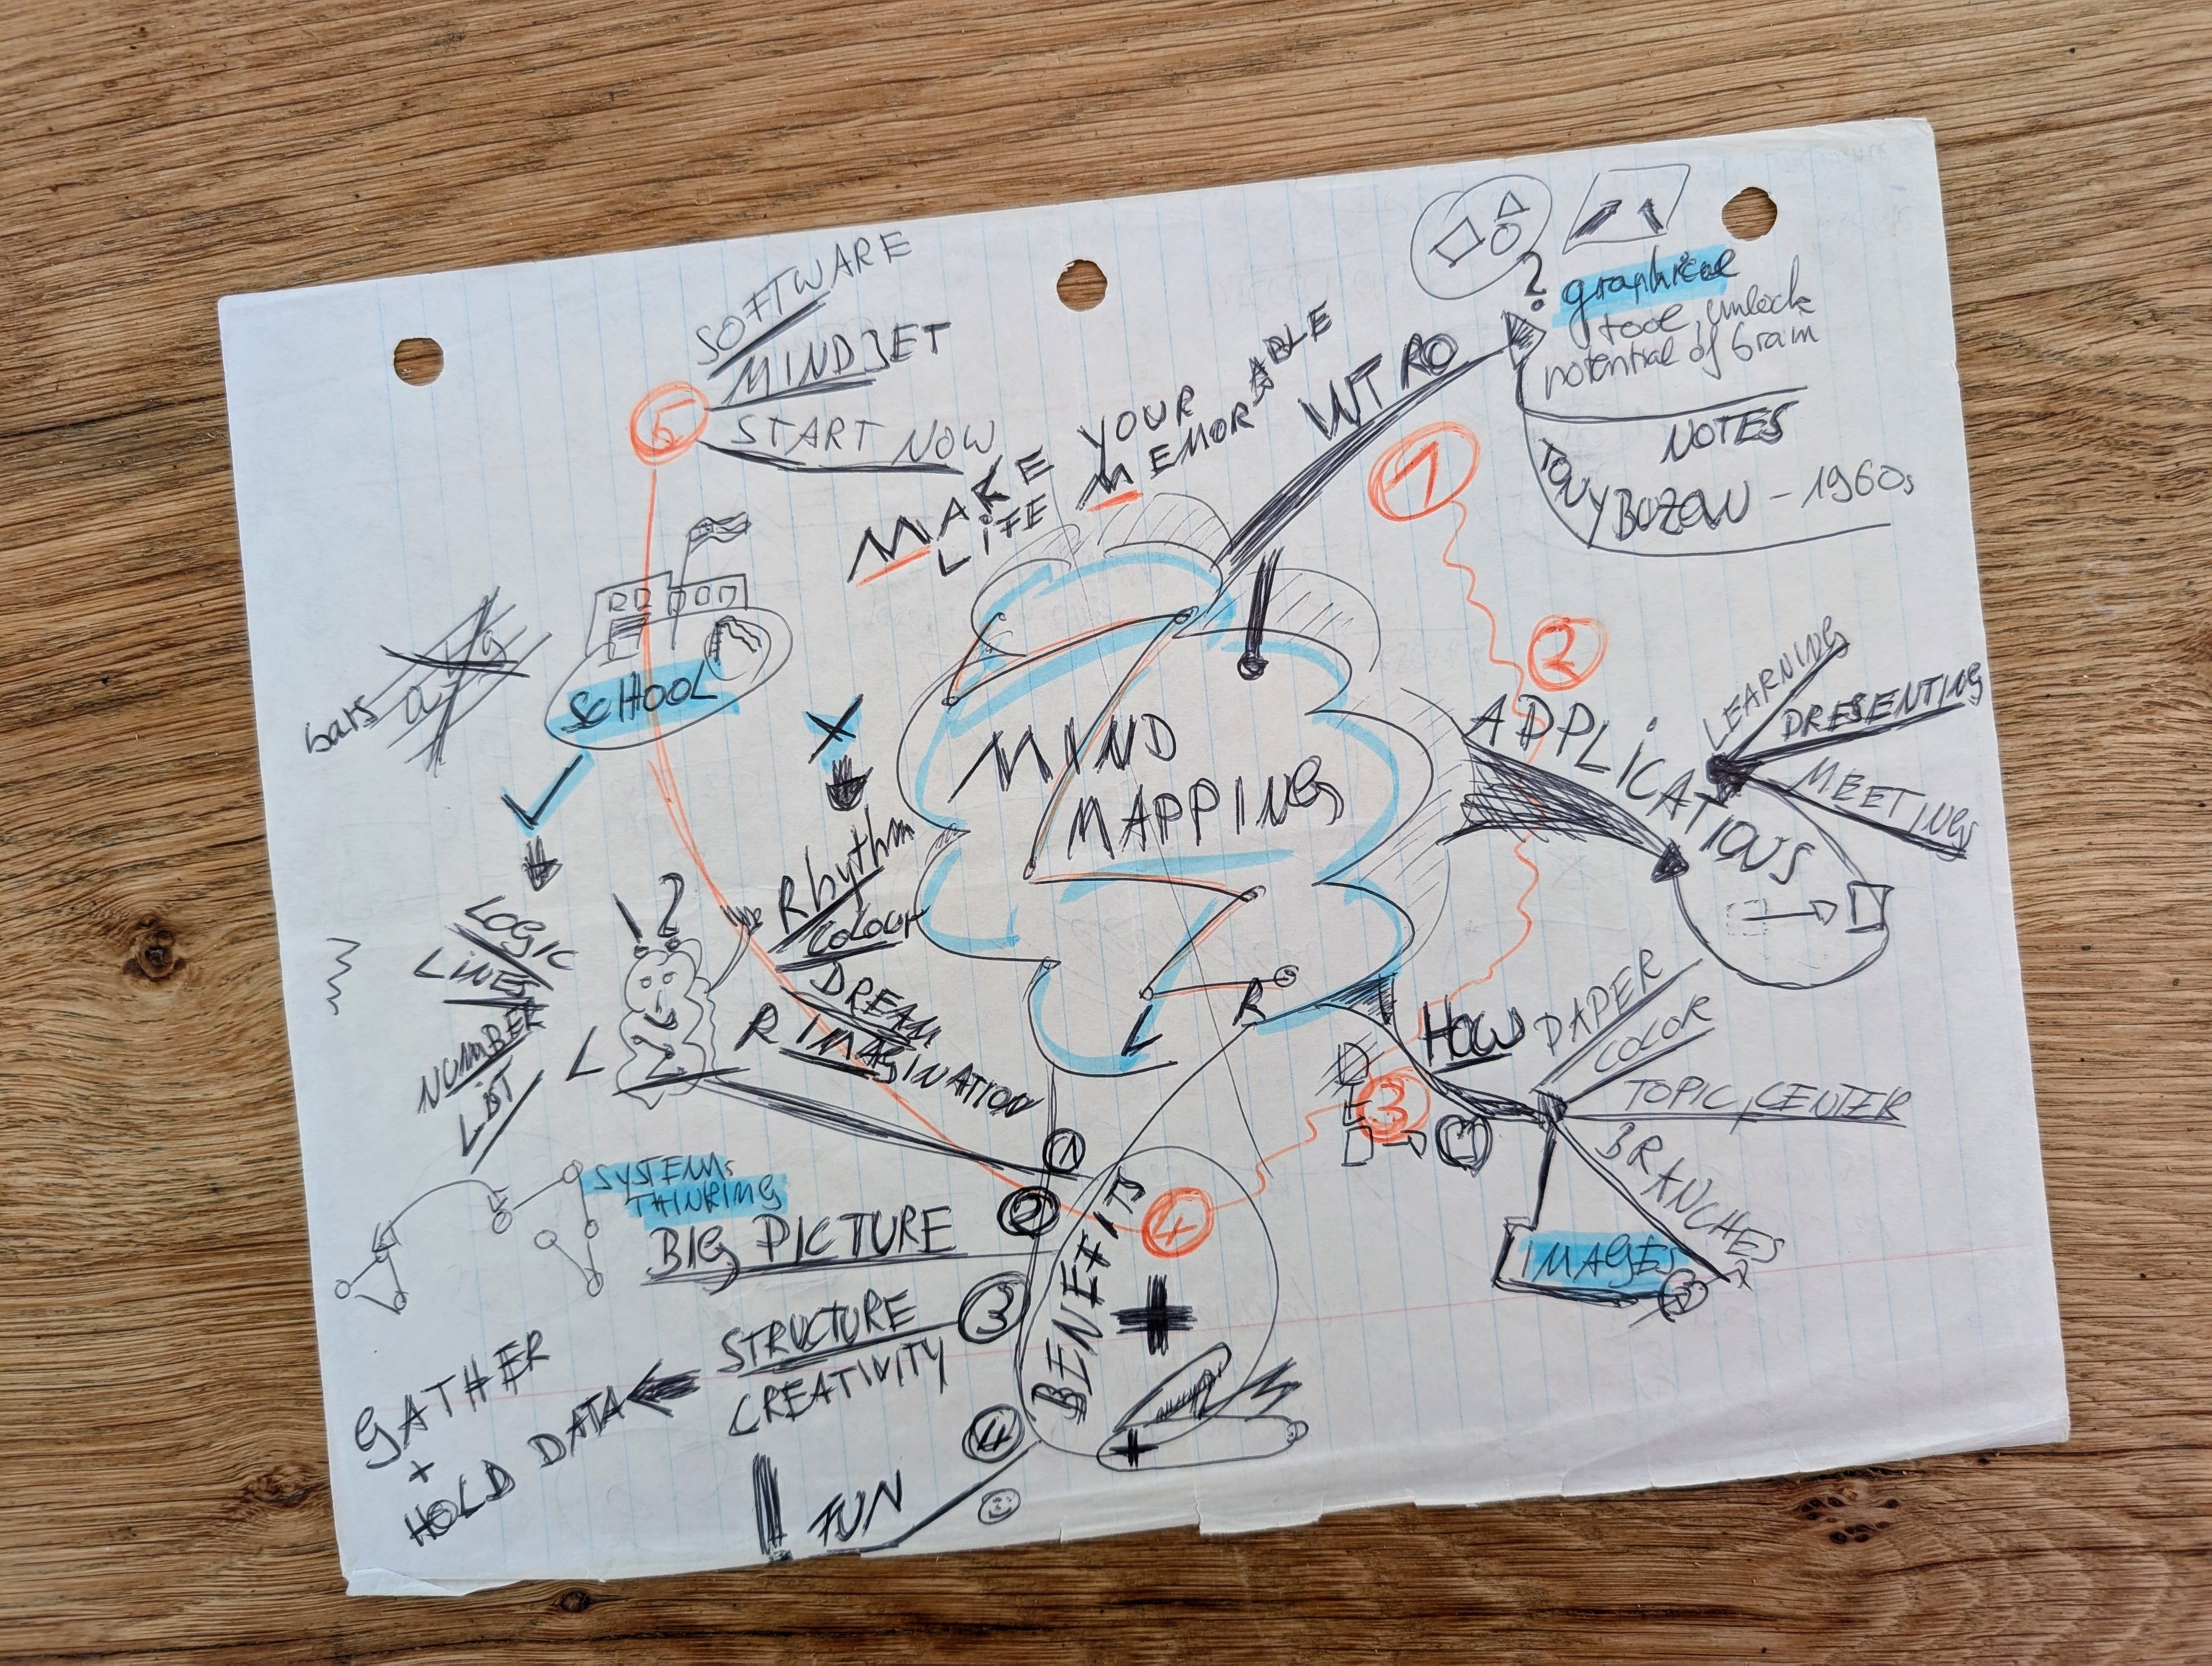 MIND
MAPPING
L
R
MAKE YOUR
LIFE MEMORABLE
1
INTRO
?
graphical
tool, unlock
potential of brain
NOTES
TONY BUZAN - 1960s
2
APPLICATIONS
LEARNING
PRESENTING
MEETING
3
HOW
PAPER
COLOR
TOPIC, CENTER
BRANCHES
IMAGES
4
BENEFITS
+
+
1
L
R
! ?
LOGIC
LINES
NUMBER
LIST
Rhythm
COLOUR
DREAM
IMAGINATION
SCHOOL
bars
2
SYSTEMS
THINKING
BIG PICTURE
3
STRUCTURE
CREATIVITY
GATHER
+
HOLD DATA
4
FUN
5
SOFTWARE
MINDSET
START NOW